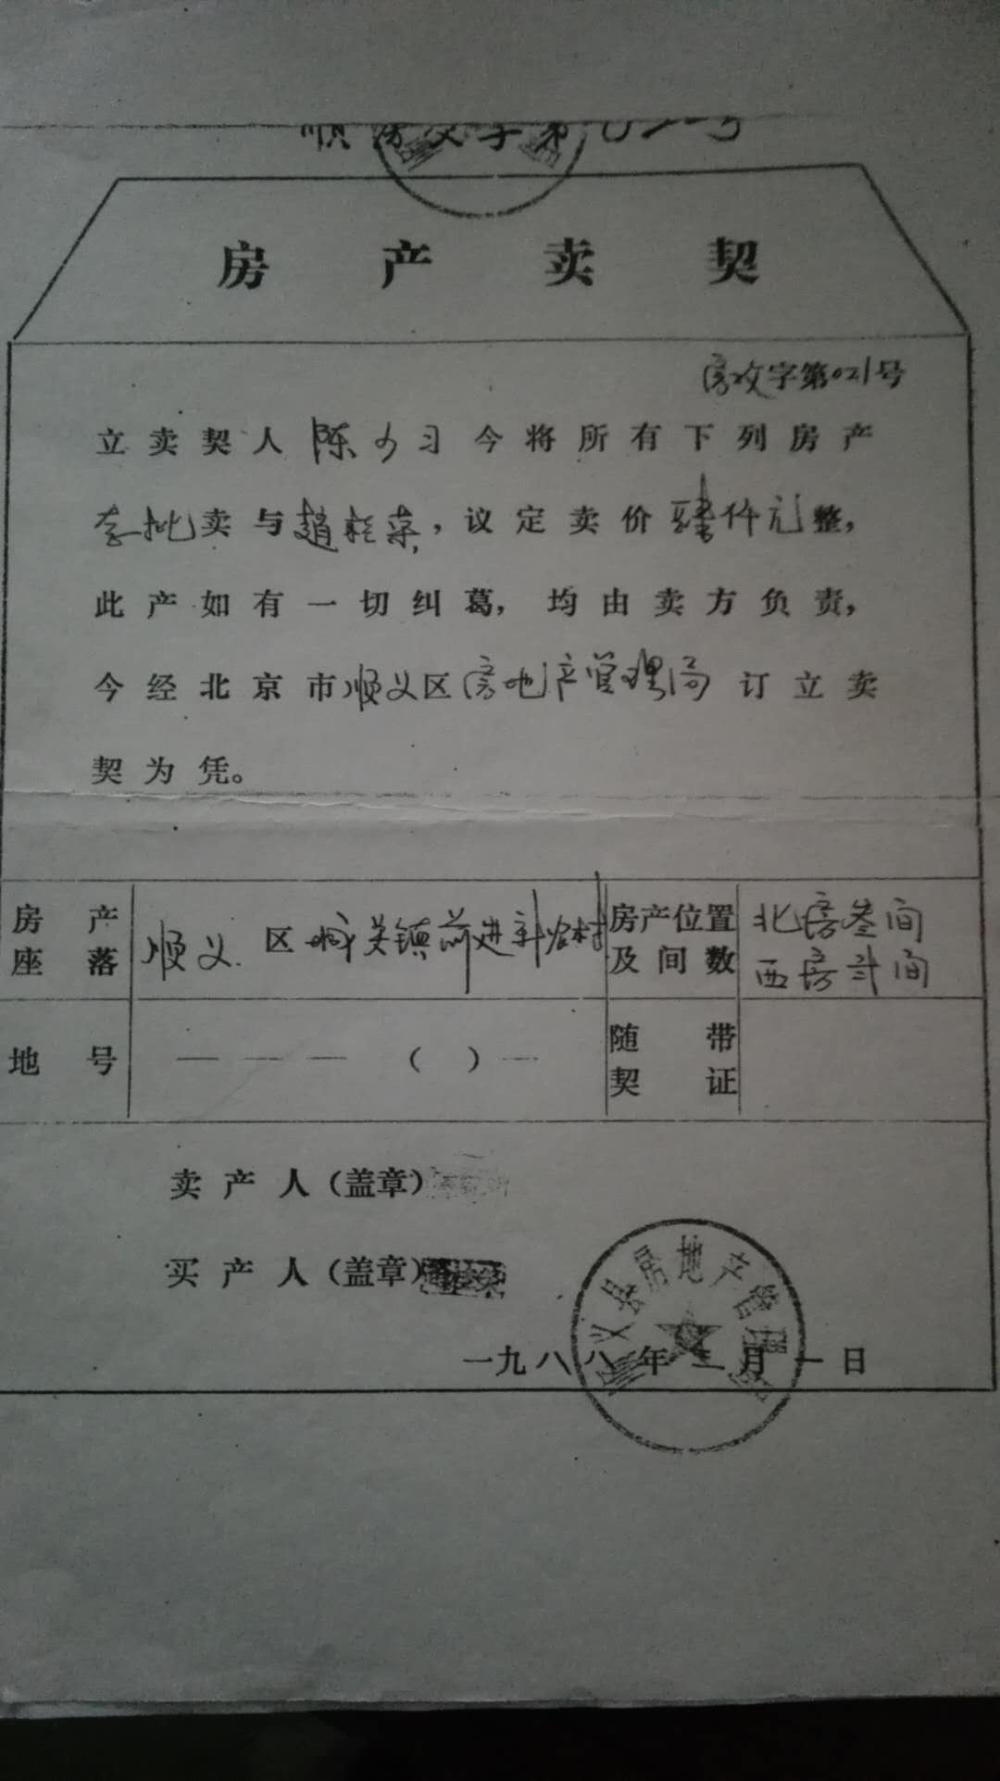 房产卖契
字第021号
立卖契人陈少习今将所有下列房产
卖与趙 ,议定卖价肆仟元整,
此产如有一切纠葛,均由卖方负责,
今经北京市顺义区房地产管理局订立卖
契为凭。
房产座落 顺义区城关镇前进 村 房产位置及间数 北房叁间 西房 间
地号 — — — ( ) — 随带契证
卖产人(盖章)
买产人(盖章)
顺义县房地产管理局
一九八八年 月一日